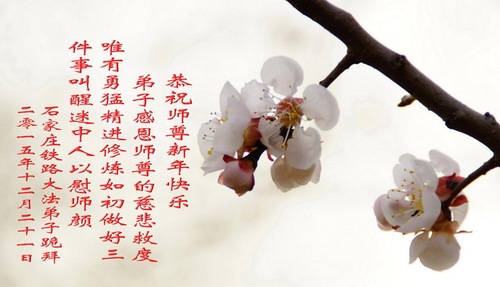 恭祝师尊新年快乐
弟子感恩师尊的慈悲救度
唯有勇猛精进修炼如初做好三
件事叫醒迷中人以慰师颜
石家庄铁路大法弟子跪拜
二零一五年十二月二十一日